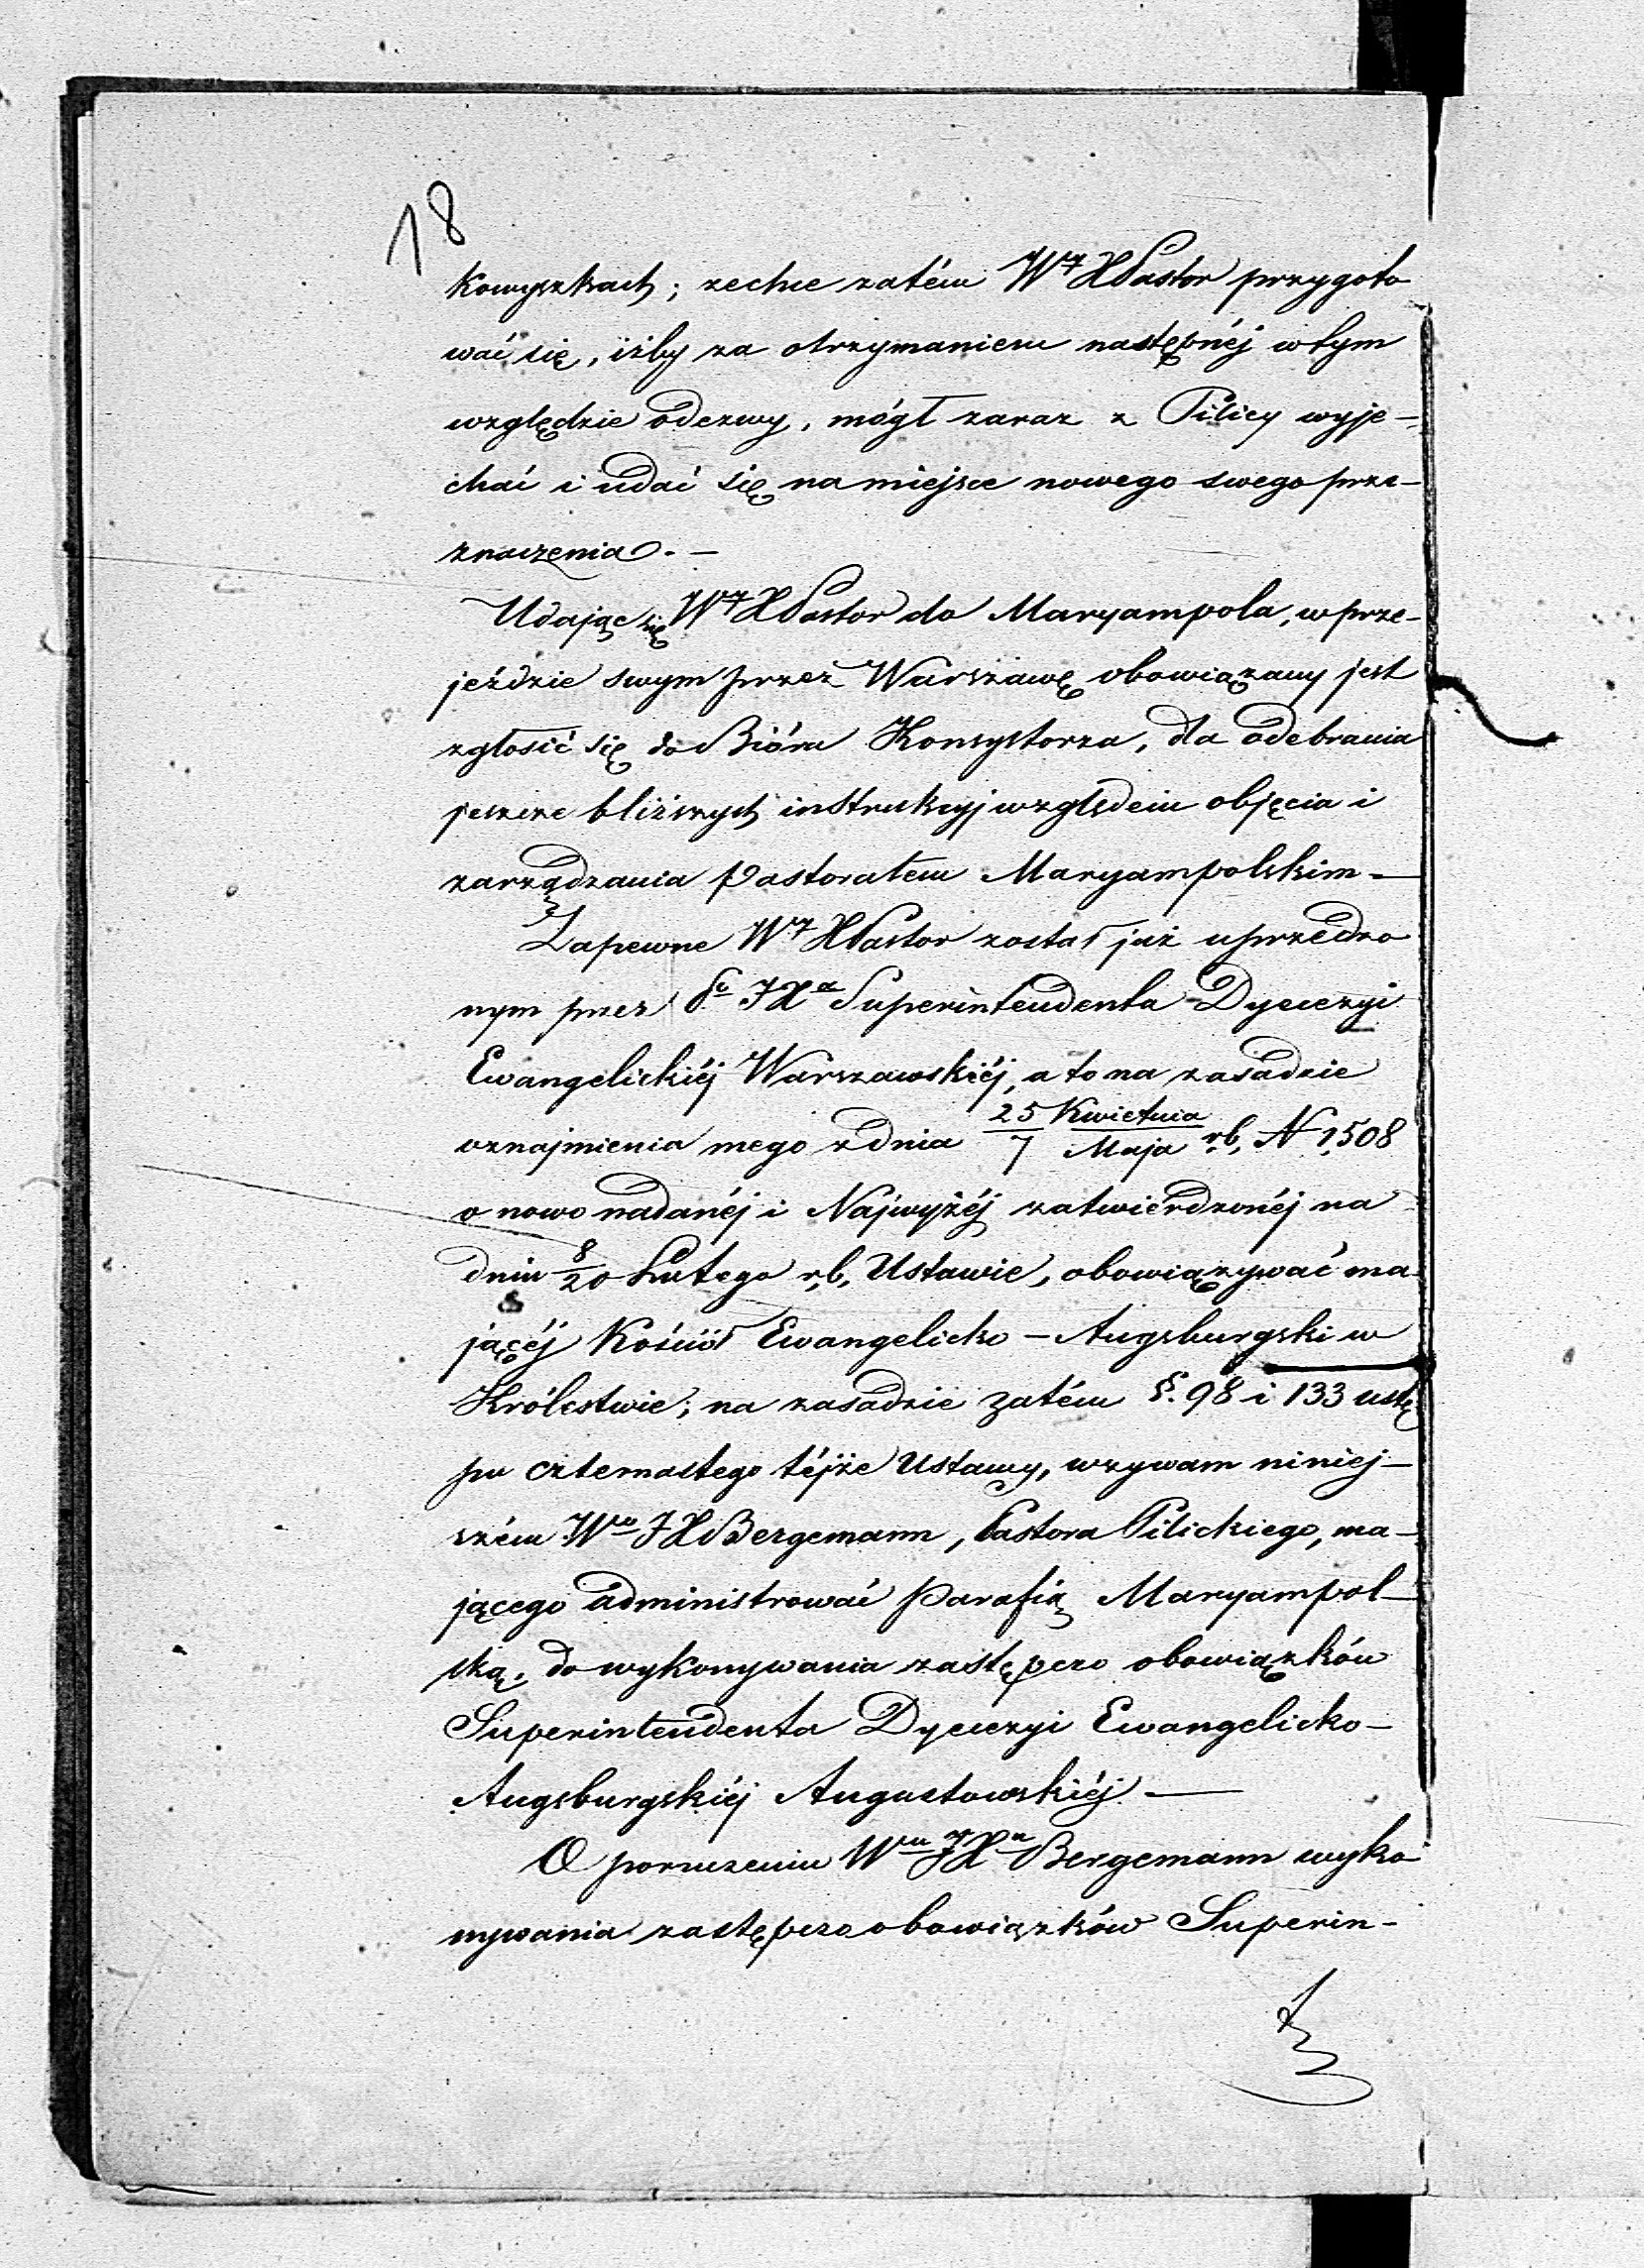 18
kowyszkach; zechce zatém Wy XPastor przygoto
wać się, iżby za otrzymaniem następnéj w tym
względzie odezwy, mógł zaraz z Pilicy wyje-
chać i udać się na miejsce nowego swego prze-
znaczenia. —
Udając się Wy XPastor do Maryampola, w prze-
jeździe swym przez Warszawę obowiązany jest
zgłosić się do Bióra Konsystorza, dla odebrania
jeszcze bliższych instrukcyj względem objęcia i
zarządzania Pastoratem Maryampolskim —
Zapewne Wy XPastor został już uprzedzo
nym przez JXa Superintendenta Dyecezyi
Ewangelickiéj Warszawskiéj, a to na zasadzie
oznajmienia mego z dnia 25 Kwietnia / 7 Maja r.b. N 1508
o nowo nadanéj i Najwyżéj zatwiérdzonéj na
dniu 8/20 Lutego r.b. Ustawie, obowiązywać ma
jącéj Kościół Ewangelicko-Augsburgski w
Królestwie; na zasadzie zatém §. 98 i 133 ustę
pu czternastego téjże Ustawy, wzywam niniej-
szém Wgo JX Bergemann, Pastora Pilickiego, ma-
jącego administrować Parafią Maryampol-
ską, do wykonywania zastępczo obowiązków
Superintendenta Dyecezyi Ewangelicko-
Augsburgskiéj Augustowskiéj. —
O poruczeniu Wmu JXu Bergemann wyko
nywania zastępczo obowiązków Superin-